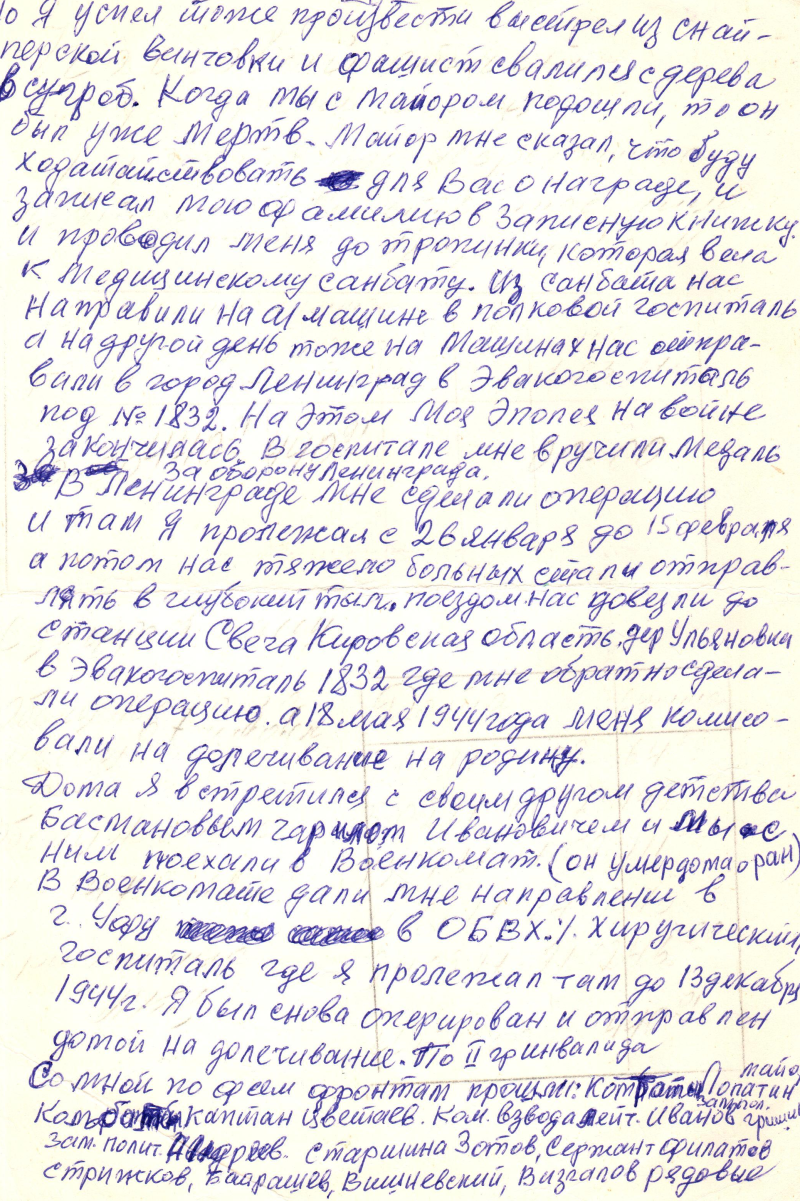 Но я успел тоже произвести выстрел из снай-
перской винтовки и фашист свалился с дерева
в сугроб. Когда мы с майором подошли, то он
был уже мертв. Майор мне сказал, что буду
ходатайствовать для Вас о награде, и
записал мою фамилию в записную книжку.
и проводил меня до тропинки, которая вела
к Медицинскому санбату. из санбата нас
направили на а/машине в полковой госпиталь
а на другой день тоже на Машинах нас отпра-
вали в город Ленинград в Эвакогоспиталь
под № 1832. На этом Моя Эпопея на войне
закончилась. В госпитале мне вручили Медаль
За оборону Ленинграда.
В Ленинграде мне сделали операцию
и там я пролежал с 26 января до 15 февраля
а потом нас тяжело больных стали отправ-
лять в глубокий тыл. поездом нас довезли до
станции Свеча Кировская область, дер Ульяновка
в Эвакогоспиталь 1832 где мне обратно сдела-
ли операцию. а 18 мая 1944 года меня комисо-
вали на долечивание на родину.
Дома я встретился с своим другом детства
Басмановым Ивановичем и мы с
ним поехали в Военкомат. (он умер дома о ран)
В Военкомате дали мне направление в
г. Уфу в ОБВХ. Хирургический
госпиталь где я пролежал там до 13 декабря
1944 г. Я был снова оперирован и отправлен
домой на долечивание. По II гр инвалида
Со мной по всем фронтам прошли: Комбаты Лопатин майор
Комбат Каптан Цветаев. Ком. взвода лейт. Иванов зам пол. Гришин
зам. полит. Андреев. старшина Зотов, Сержант Филатов
Стрижков, Байрашев, Вишневский, Визгалов рядовые